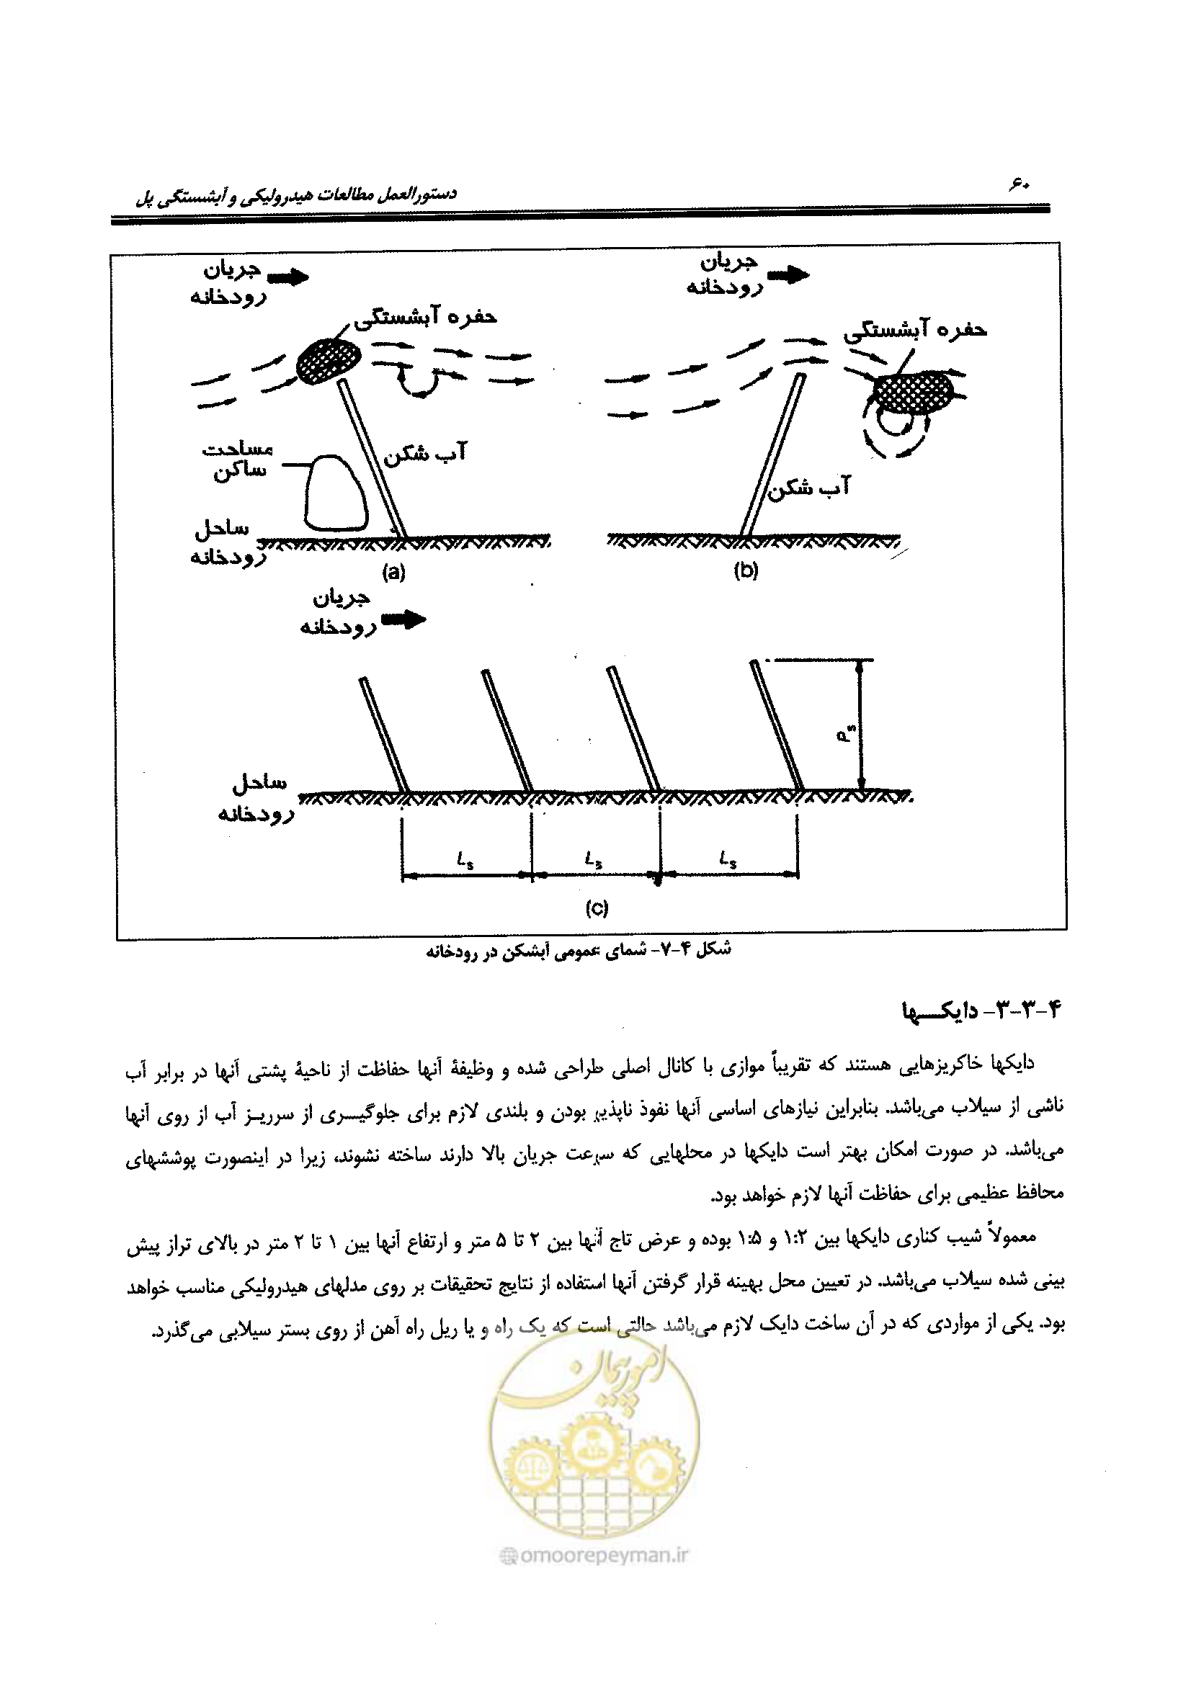 ۶۰
دستورالعمل مطالعات هیدرولیکی و آبشستگی پل
جریان
رودخانه
جریان
رودخانه
حفره آبشستگی
حفره آبشستگی
مساحت
ساکن
آب شکن
آب شکن
ساحل
رودخانه
(a)
(b)
جریان
رودخانه
Ps
ساحل
رودخانه
Ls
Ls
Ls
(c)
شکل ۴-۷- شمای عمومی آبشکن در رودخانه
۴-۳-۳- دایکـــها
دایکها خاکریزهایی هستند که تقریباً موازی با کانال اصلی طراحی شده و وظیفهٔ آنها حفاظت از ناحیهٔ پشتی آنها در برابر آب
ناشی از سیلاب می‌باشد. بنابراین نیازهای اساسی آنها نفوذ ناپذیر بودن و بلندی لازم برای جلوگیــری از سرریــز آب از روی آنها
می‌باشد. در صورت امکان بهتر است دایکها در محلهایی که سرعت جریان بالا دارند ساخته نشوند، زیرا در اینصورت پوششهای
محافظ عظیمی برای حفاظت آنها لازم خواهد بود.
معمولاً شیب کناری دایکها بین ۱:۲ و ۱:۵ بوده و عرض تاج آنها بین ۲ تا ۵ متر و ارتفاع آنها بین ۱ تا ۲ متر در بالای تراز پیش
بینی شده سیلاب می‌باشد. در تعیین محل بهینه قرار گرفتن آنها استفاده از نتایج تحقیقات بر روی مدلهای هیدرولیکی مناسب خواهد
بود. یکی از مواردی که در آن ساخت دایک لازم می‌باشد حالتی است که یک راه و یا ریل راه آهن از روی بستر سیلابی می‌گذرد.
امور پیمان
omoorepeyman.ir